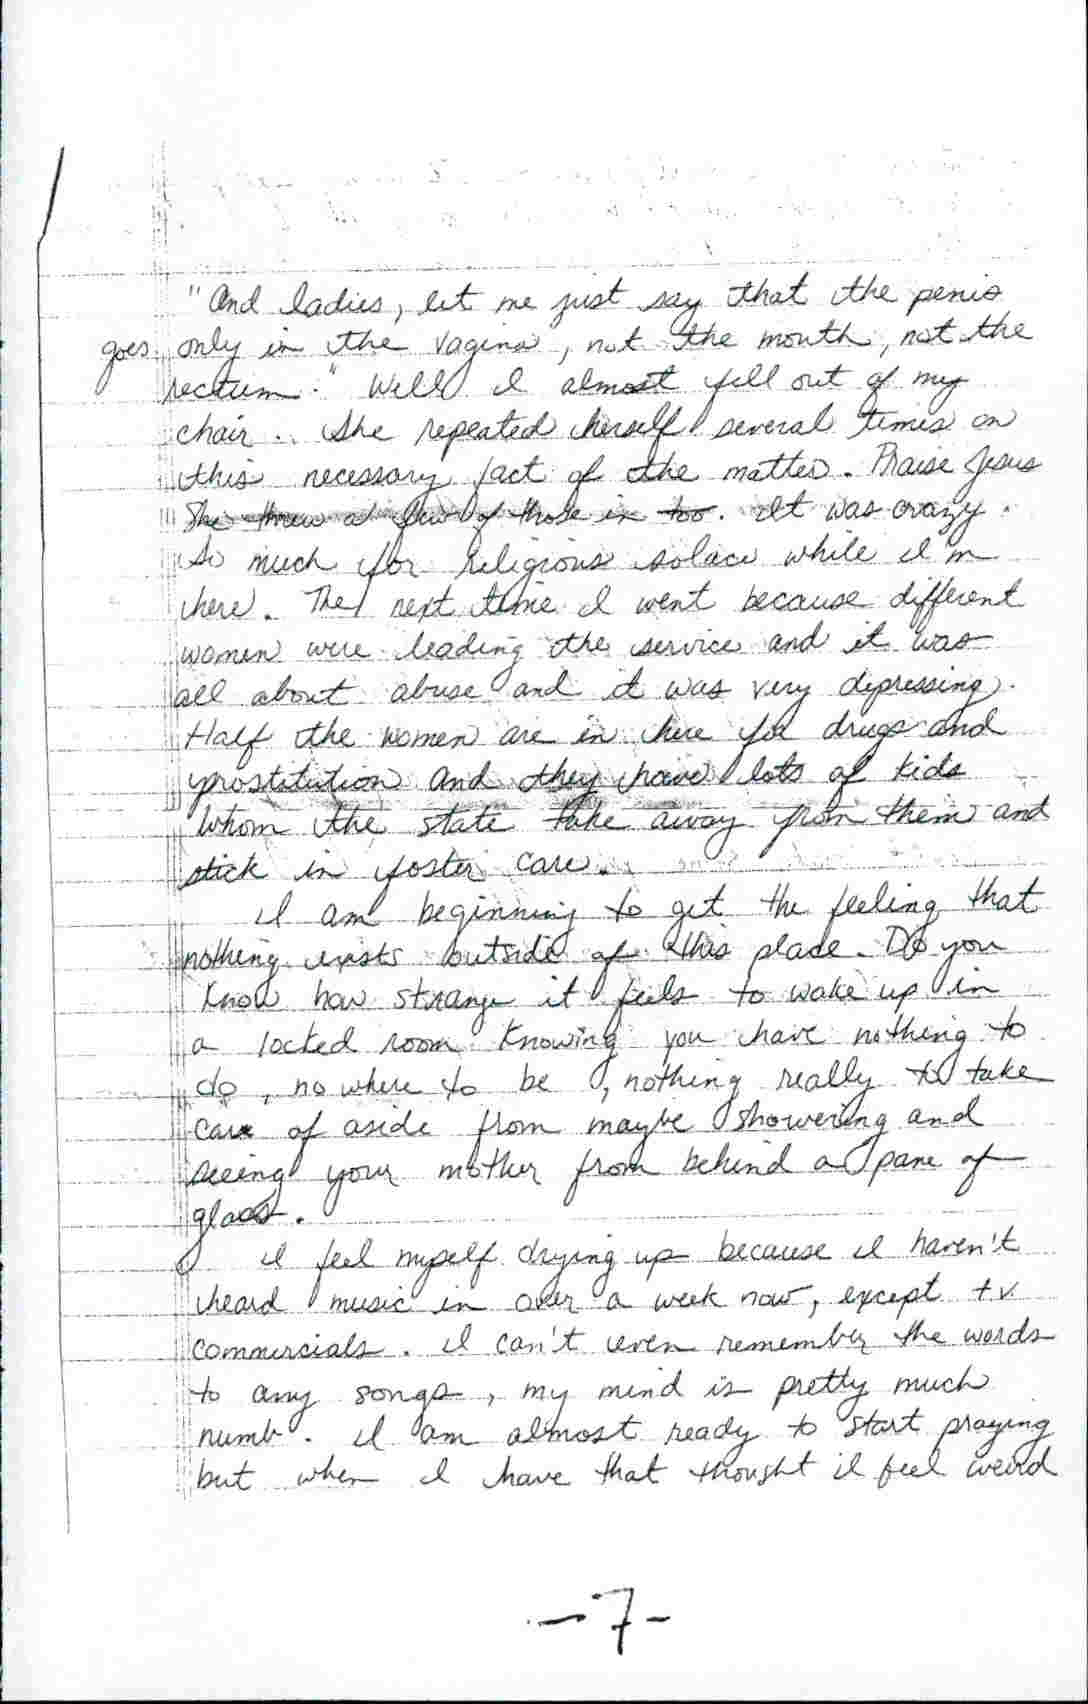 "And ladies, let me just say that the penis
goes only in the vagina, not the mouth, not the
rectum." Well I almost fell out of my
chair. She repeated herself several times on
this necessary fact of the matter. Praise Jesus
She threw a few of those in too. It was crazy.
So much for religious solace while I'm
here. The next time I went because different
women were leading the service and it was
all about abuse and it was very depressing.
Half the women are in here for drugs and
prostitution and they have lots of kids
whom the state take away from them and
stick in foster care.
I am beginning to get the feeling that
nothing exists outside of this place. Do you
know how strange it feels to wake up in
a locked room knowing you have nothing to
do, no where to be, nothing really to take
care of aside from maybe showering and
seeing your mother from behind a pane of
glass.
I feel myself drying up because I haven't
heard music in over a week now, except tv
commercials. I can't even remember the words
to any songs, my mind is pretty much
numb. I am almost ready to start praying
but when I have that thought I feel weird
-7-